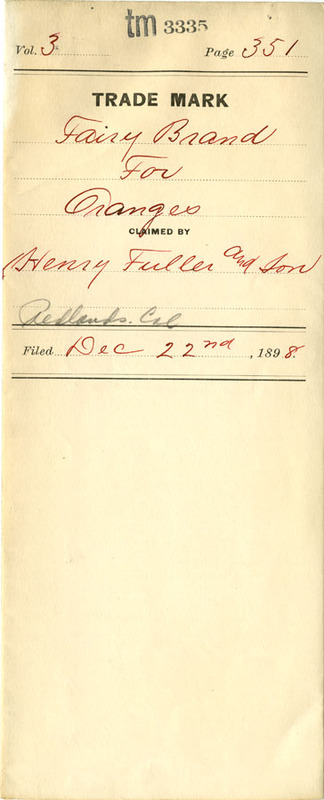 tm 3335
Vol. 3 Page 351
TRADE MARK
Fairy Brand
For
Oranges
CLAIMED BY
Henry Fuller and Son
Redlands. Cal
Filed Dec 22nd, 1898.